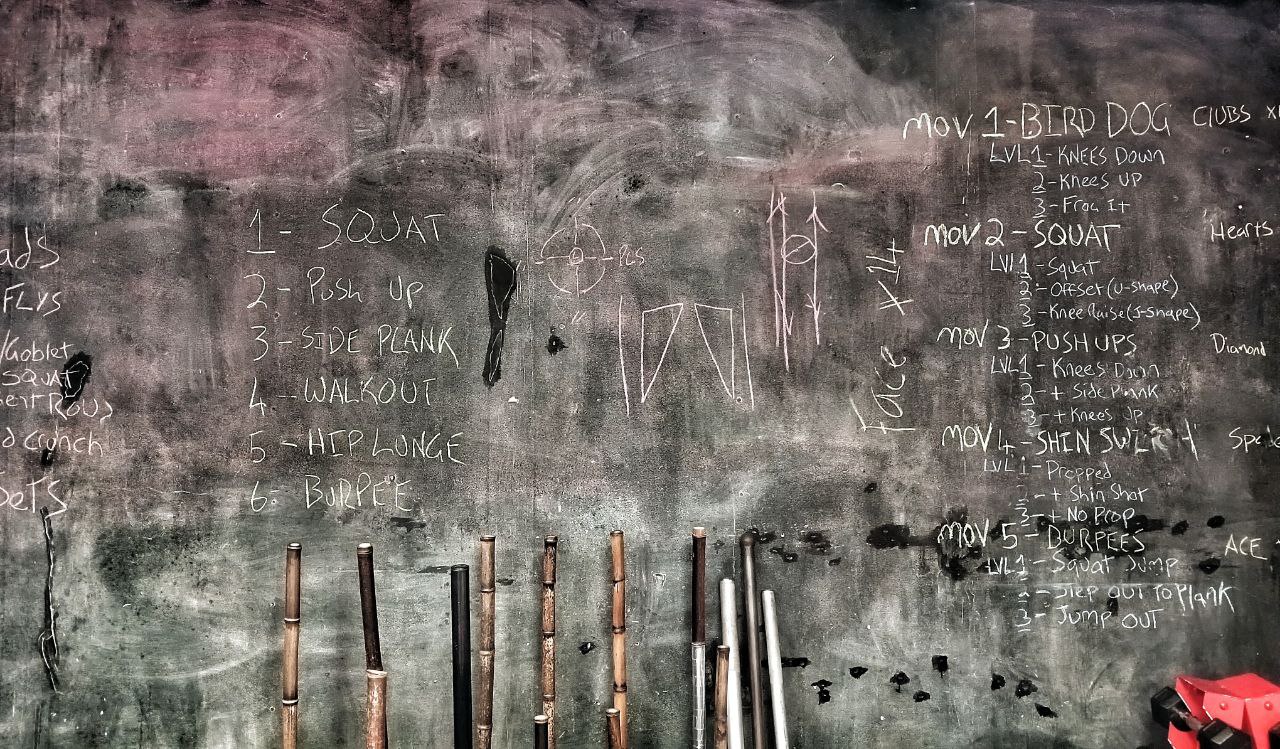 ads
FLYS
/Goblet
SQUAT
ent Rows
d crunch
SeTS
1- SQUAT
2- Push Up
3- SIDE PLANK
4 - WALKOUT
5 - HIP LUNGE
6- BURPEE
Face x14
mov 1-BIRD DOG CLUBS
LVL 1- KNEES DOWN
2- Knees UP
3- Frog It
mov 2 - SQUAT Hearts
LVL 1 - Squat
2- Offset (U-shape)
3- Knee Raise (J-shape)
mov 3 - PUSH UPS Diamond
LVL 1 - Knees Down
2- + Side Plank
3- + Knees Up
MOV 4 - SHIN
LVL 1- Propped
2- + Shin Shot
3- + No Prop
MOV 5 - BURPEES ACE
LVL 1 - Squat Jump
2 - Step OUT TO Plank
3 - Jump OUT